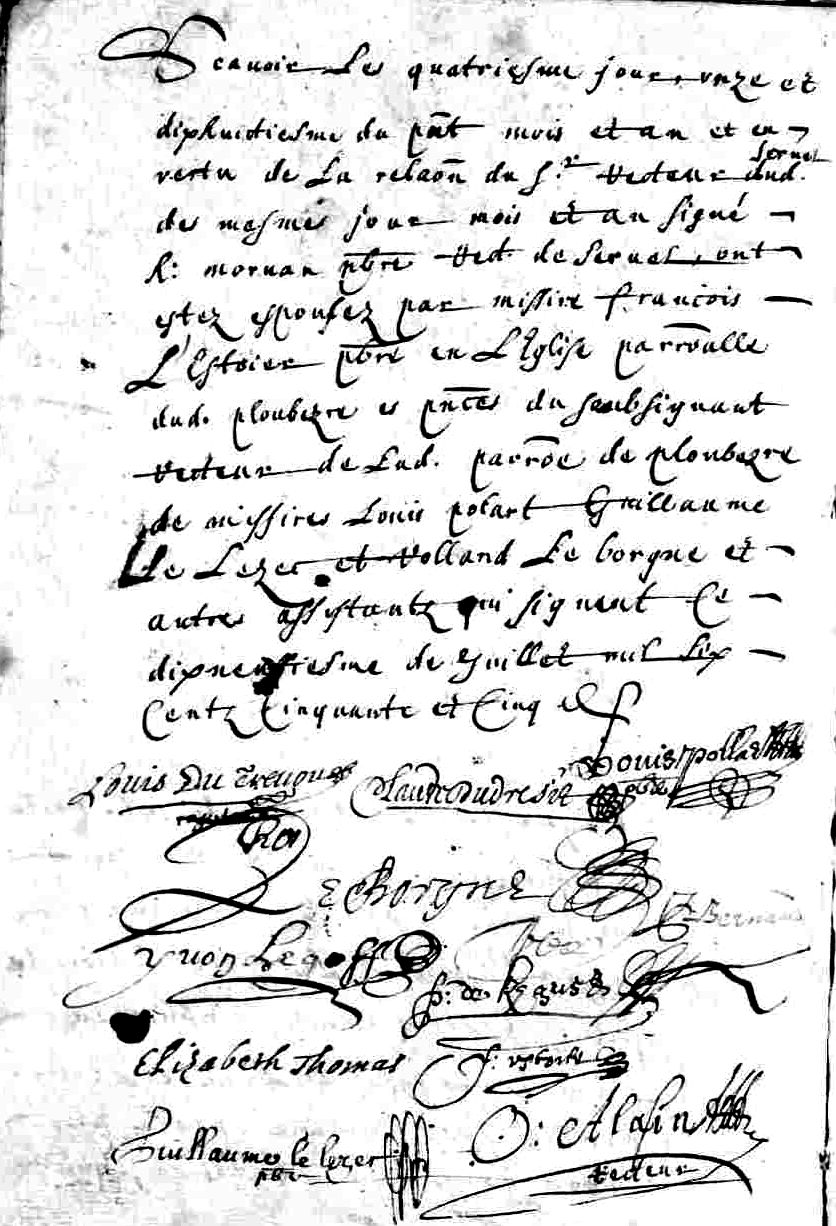 Scauoir Les quatriesme jour, unze et
diphuictiesme du pnt mois et an et en
vertu de La relaon du Sr Recteur dud. Seruel
des mesmes jour mois et an signé
R: moruan pbre Rect. de Seruel, ont
estez espousez par missire francois
L'Estoier pbre en L'Eglise parroalle
dud. ploubezre es pnces du soubsignant
Recteur de Lad. parroe de ploubezre
de missires Louis polart Guillaume
Le Lezec et Rolland Le borgne et
autres assistantz qui signent Ce
dixneufiesme de Juillet mil Six
Centz Cinquante et Cinq
Louis Du Treuou
Claude du dresit
Louis pollart
pbre
Le borgne
Bernard
yuon Le goff
Elizabeth Thomas
Guillaume le lezec
pbre
O: Alasin
Recteur